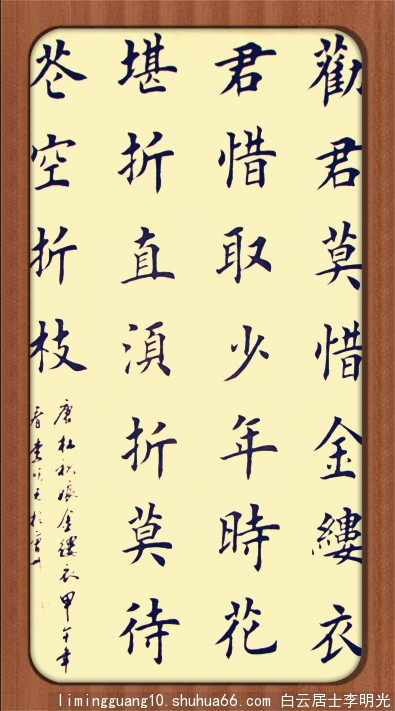 勸君莫惜金縷衣
君惜取少年時花
堪折直湏折莫待
花空折枝
唐杜秋娘金縷衣甲午年
春
limingguang10.shuhua66.com 白云居士李明光